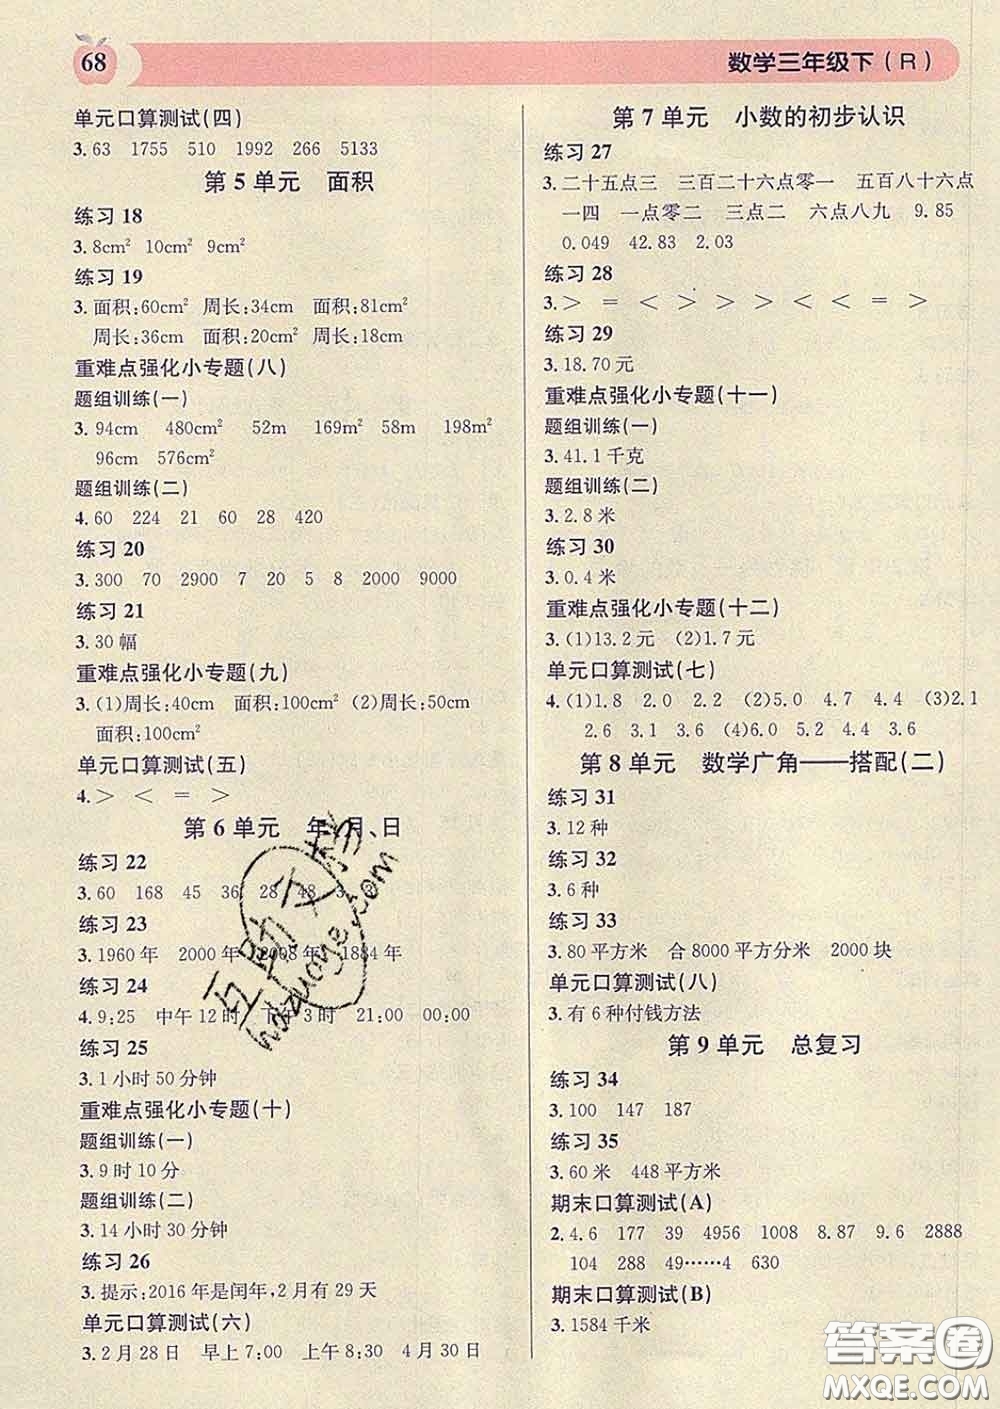 68
数学三年级下(R)
单元口算测试(四)
3. 63 1755 510 1992 266 5133
第5单元 面积
练习18
3. 8cm² 10cm² 9cm²
练习19
3. 面积:60cm² 周长:34cm 面积:81cm²
周长:36cm 面积:20cm² 周长:18cm
重难点强化小专题(八)
题组训练(一)
3. 94cm 480cm² 52m 169m² 58m 198m²
96cm 576cm²
题组训练(二)
4. 60 224 21 60 28 420
练习20
3. 300 70 2900 7 20 5 8 2000 9000
练习21
3. 30幅
重难点强化小专题(九)
3. (1)周长:40cm 面积:100cm² (2)周长:50cm
面积:100cm²
单元口算测试(五)
4. > < = >
第6单元 年、月、日
练习22
3. 60 168 45 36 28 48 3
练习23
3. 1960年 2000年 2008年 1884年
练习24
4. 9:25 中午12时 下午3时 21:00 00:00
练习25
3. 1小时50分钟
重难点强化小专题(十)
题组训练(一)
3. 9时10分
题组训练(二)
3. 14小时30分钟
练习26
3. 提示:2016年是闰年,2月有29天
单元口算测试(六)
3. 2月28日 早上7:00 上午8:30 4月30日
第7单元 小数的初步认识
练习27
3. 二十五点三 三百二十六点零一 五百八十六点
一四 一点零二 三点二 六点八九 9.85
0.049 42.83 2.03
练习28
3. > = < > > > < < = >
练习29
3. 18.70元
重难点强化小专题(十一)
题组训练(一)
3. 41.1千克
题组训练(二)
3. 2.8米
练习30
3. 0.4米
重难点强化小专题(十二)
3. (1)13.2元 (2)1.7元
单元口算测试(七)
4. (1)1.8 2.0 2.2 (2)5.0 4.7 4.4 (3)2.1
2.6 3.1 3.6 (4)6.0 5.2 4.4 3.6
第8单元 数学广角——搭配(二)
练习31
3. 12种
练习32
3. 6种
练习33
3. 80平方米 合8000平方分米 2000块
单元口算测试(八)
3. 有6种付钱方法
第9单元 总复习
练习34
3. 100 147 187
练习35
3. 60米 448平方米
期末口算测试(A)
2. 4.6 177 39 4956 1008 8.87 9.6 2888
104 288 49……4 630
期末口算测试(B)
3. 1584千米
互助文档
hdzuoye.com
答案圈
MXQE.COM